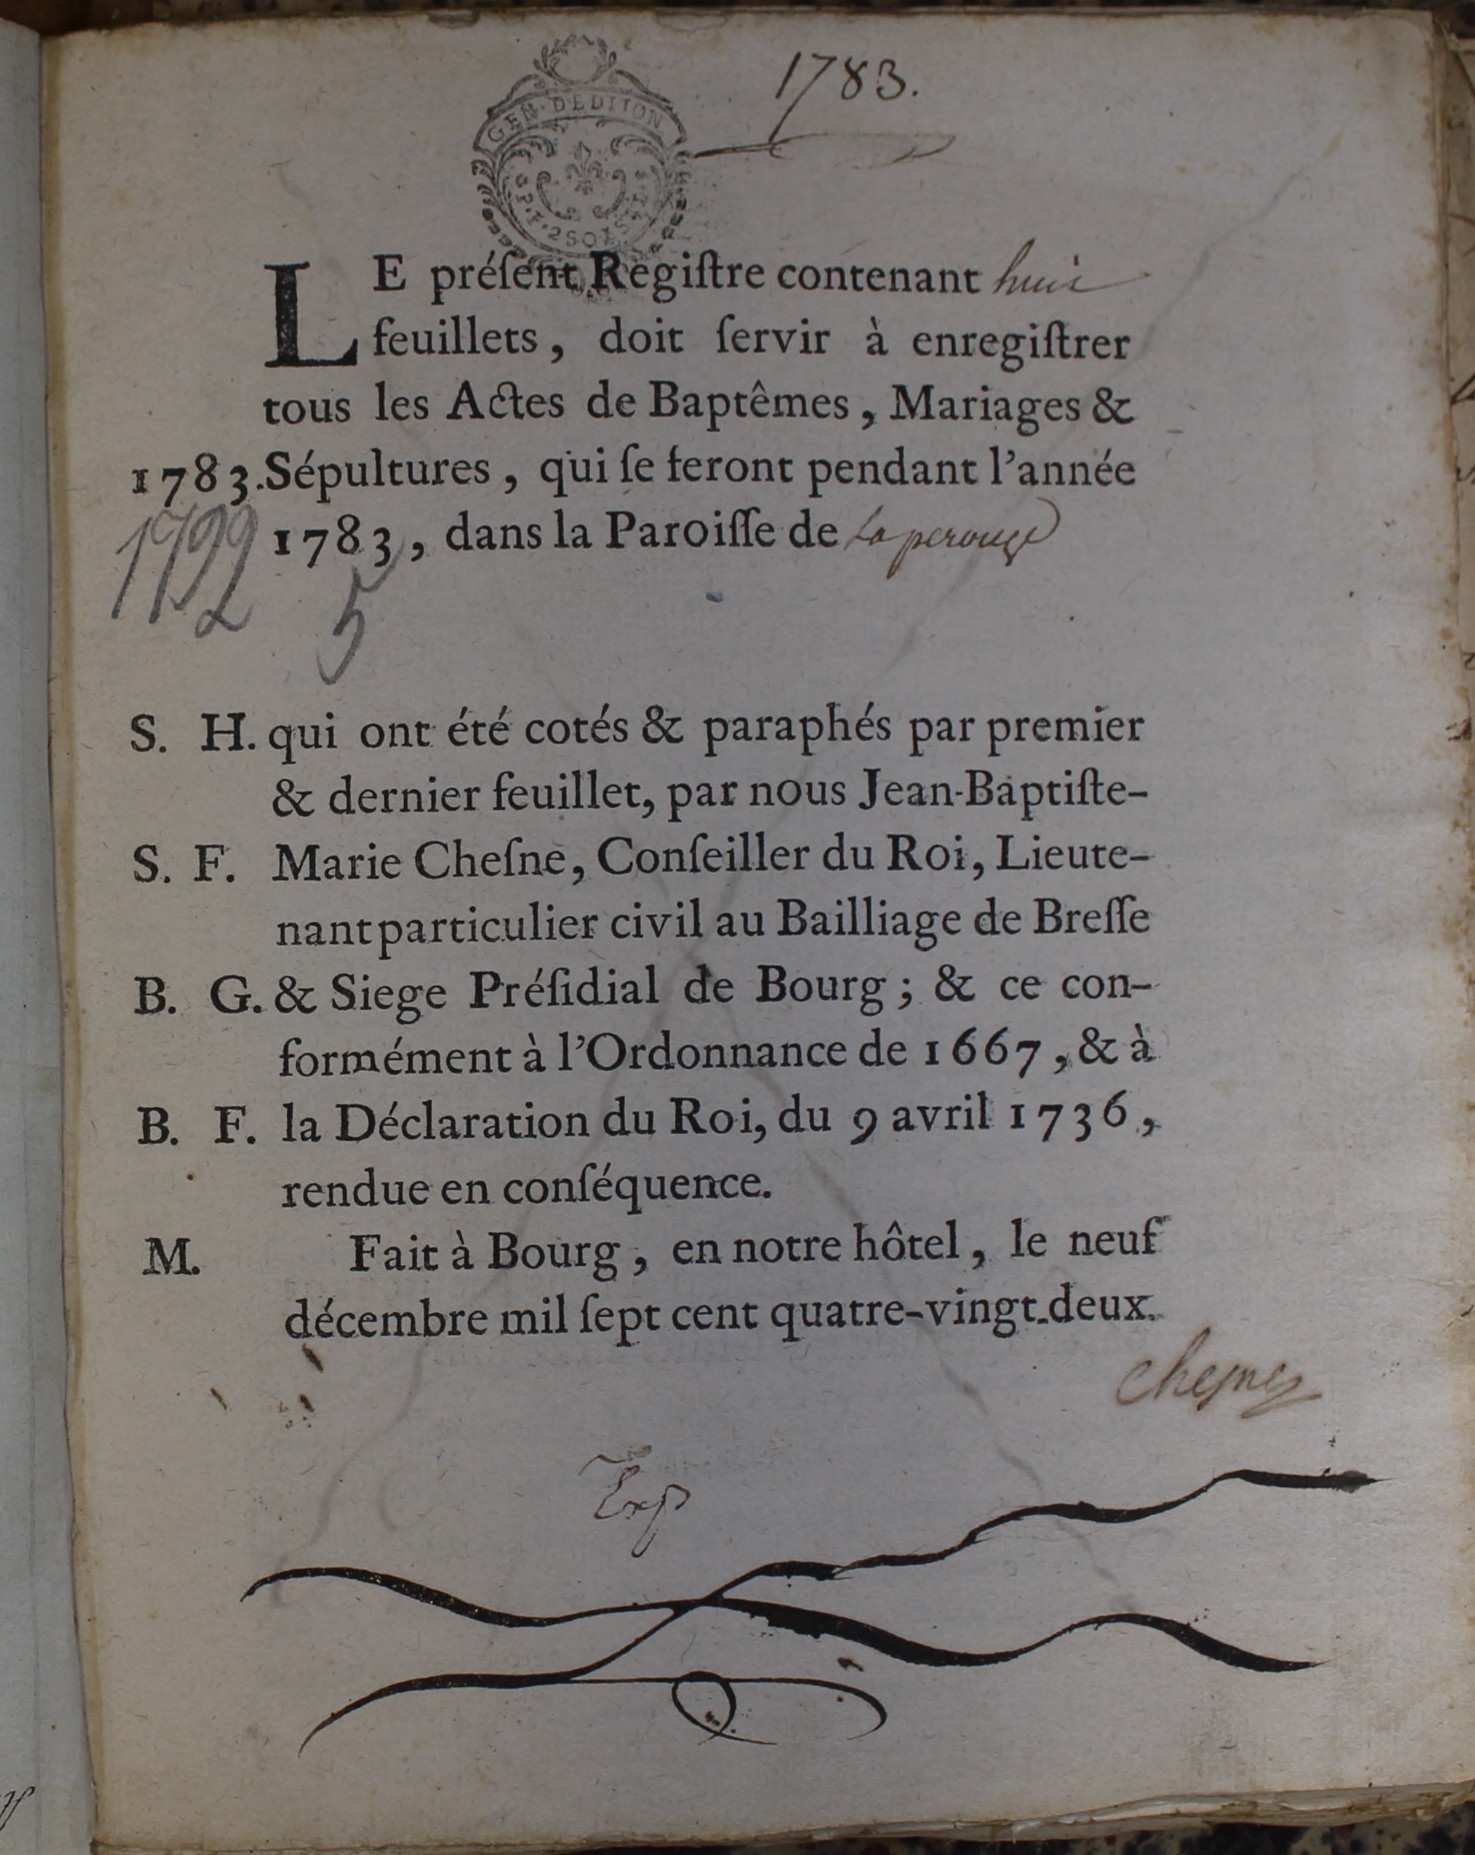 1783.
GEN. DE DIJON
2 SOLS
LE préſent Regiſtre contenant huit
feuillets, doit ſervir à enregiſtrer
tous les Actes de Baptêmes, Mariages &
1783. Sépultures, qui ſe feront pendant l'année
1783, dans la Paroiſſe de La perouze
5
S. H. qui ont été cotés & paraphés par premier
& dernier feuillet, par nous Jean-Baptiſte-
S. F. Marie Cheſne, Conſeiller du Roi, Lieute-
nant particulier civil au Bailliage de Breſſe
B. G. & Siege Préſidial de Bourg; & ce con-
formément à l'Ordonnance de 1667, & à
B. F. la Déclaration du Roi, du 9 avril 1736,
rendue en conſéquence.
M. Fait à Bourg, en notre hôtel, le neuf
décembre mil ſept cent quatre-vingt-deux.
Chesne